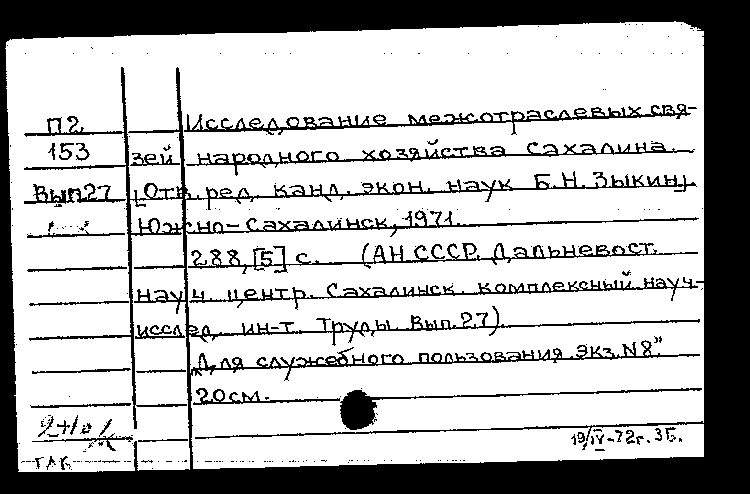 П2 Исследование межотраслевых свя-
153 зей народного хозяйства Сахалина.
Вып27 [Отв.ред. канд. экон. наук Б.Н.Зыкин].
Южно-Сахалинск, 1971.
288,[5] с. (АН СССР. Дальневост.
науч. центр. Сахалинск. комплексный науч.-
исслед. ин-т. Труды. Вып.27).
"Для служебного пользования. Экз.N8"
20см.
19/IV-72г. ЗБ.